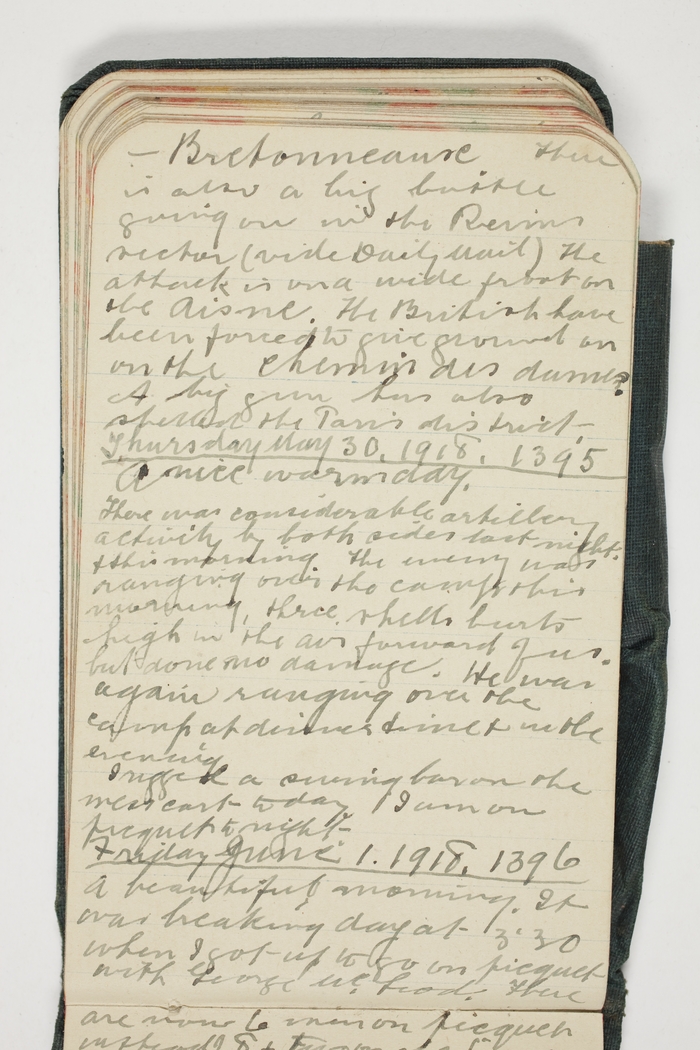 - Bretonneause There
is also a big battle
going on in the Reims
sector (vide Daily Mail) The
attack is on a wide front on
the Aisne. The British have
been forced to give ground on
on the Chemin des dames?
A big gun has also
shelled the Paris district -
Thursday May 30. 1918. 1395
A nice warm day.
There was considerable artillery
activity by both sides last night.
& this morning. The enemy was
ranging over the camp this
morning, three shells bursts
high in the air forward of us.
but done no damage. He was
again ranging over the
camp at dinner time & in the
evening.
Rigged a swing bar on the
mess cart to day I am on
picquet to night -
Friday June 1. 1918. 1396
A beautiful morning. It
was breaking day at 3.30
when I got up to go on picquet
with George McLeod. There
are now 6 men on picquet
instead of